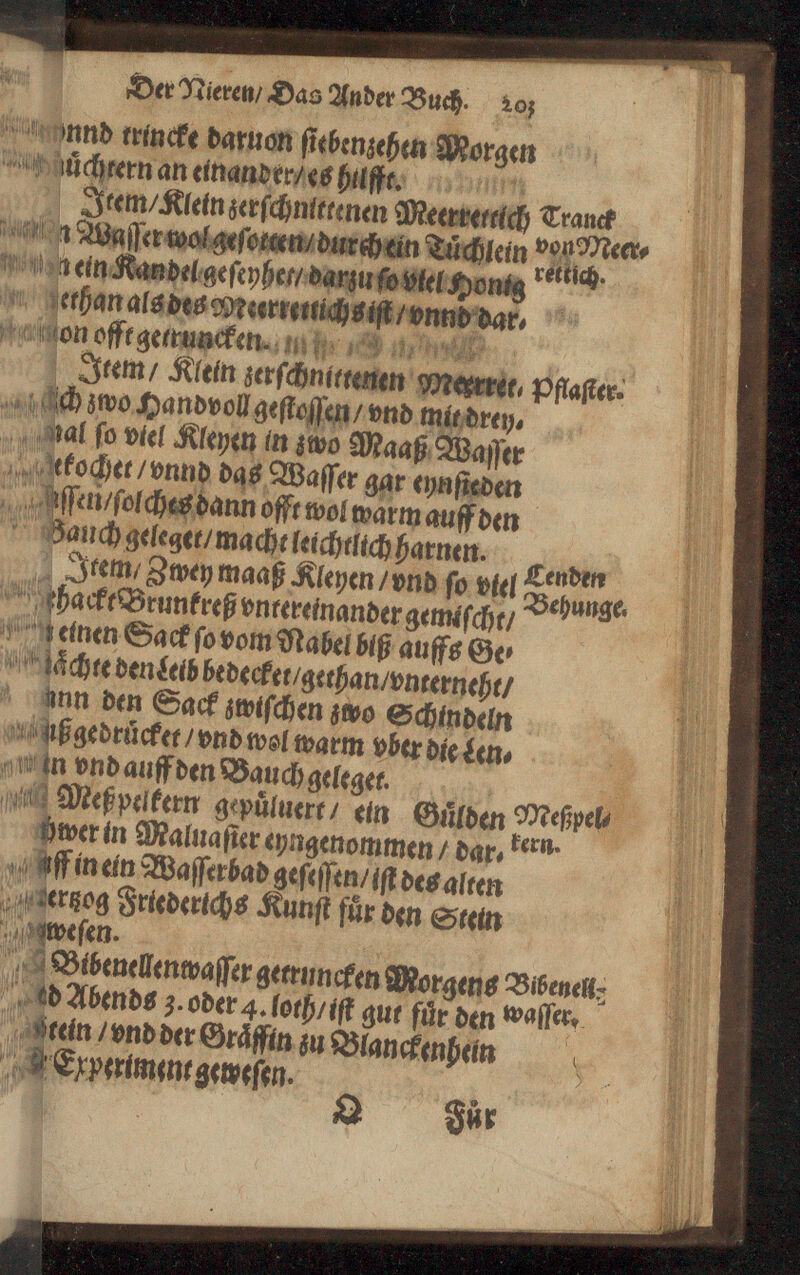 Der Nieren/ Das Ander Buch. 203
vnnd trincke daruon siebenzehen Morgen
nuͤchtern an einander/ es hilfft.
Item/ Klein zerschnittenen Meerrettich
Tranck von Meer⸗
rettich.
Wasser wol gesotten/ durch ein Tuͤchlein
ein Kandel geseyhet/ darzu so viel Honig
gethan als des Meerrettichs ist/ vnnd dar⸗
uon offt getruncken.
Item/ Klein zerschnittenen Meerret⸗
Pflaster.
ich zwo Handvoll gestossen/ vnd mit drey⸗
mal so viel Kleyen in zwo Maaß Wasser
gekochet/ vnnd das Wasser gar eynsieden
lassen/ solches dann offt wol warm auff den
Bauch geleget/ macht leichtlich harnen.
Item/ Zwey maaß Kleyen/ vnd so viel
Lenden
Behunge.
gehackt Brunkreß vntereinander gemischt/
einen Sack so vom Nabel biß auffs Ge⸗
maͤchte den Leib bedecket/ gethan/ vnterneht/
dann den Sack zwischen zwo Schindeln
außgedruͤcket/ vnd wol warm vber die Len⸗
den vnd auff den Bauch geleget.
Meßpelkern gepuͤluert/ ein Guͤlden
Meßpel⸗
kern.
schwer in Maluasier eyngenommen/ dar⸗
auff in ein Wasserbad gesessen/ ist des alten
Hertzog Friederichs Kunst fuͤr den Stein
gewesen.
Bibenellenwasser getruncken Morgens
Bibenell⸗
wasser.
vnd Abends 3. oder 4. loth/ ist gut fuͤr den
Stein/ vnd der Graͤffin zu Blanckenhein
Experiment gewesen.
O Fuͤr